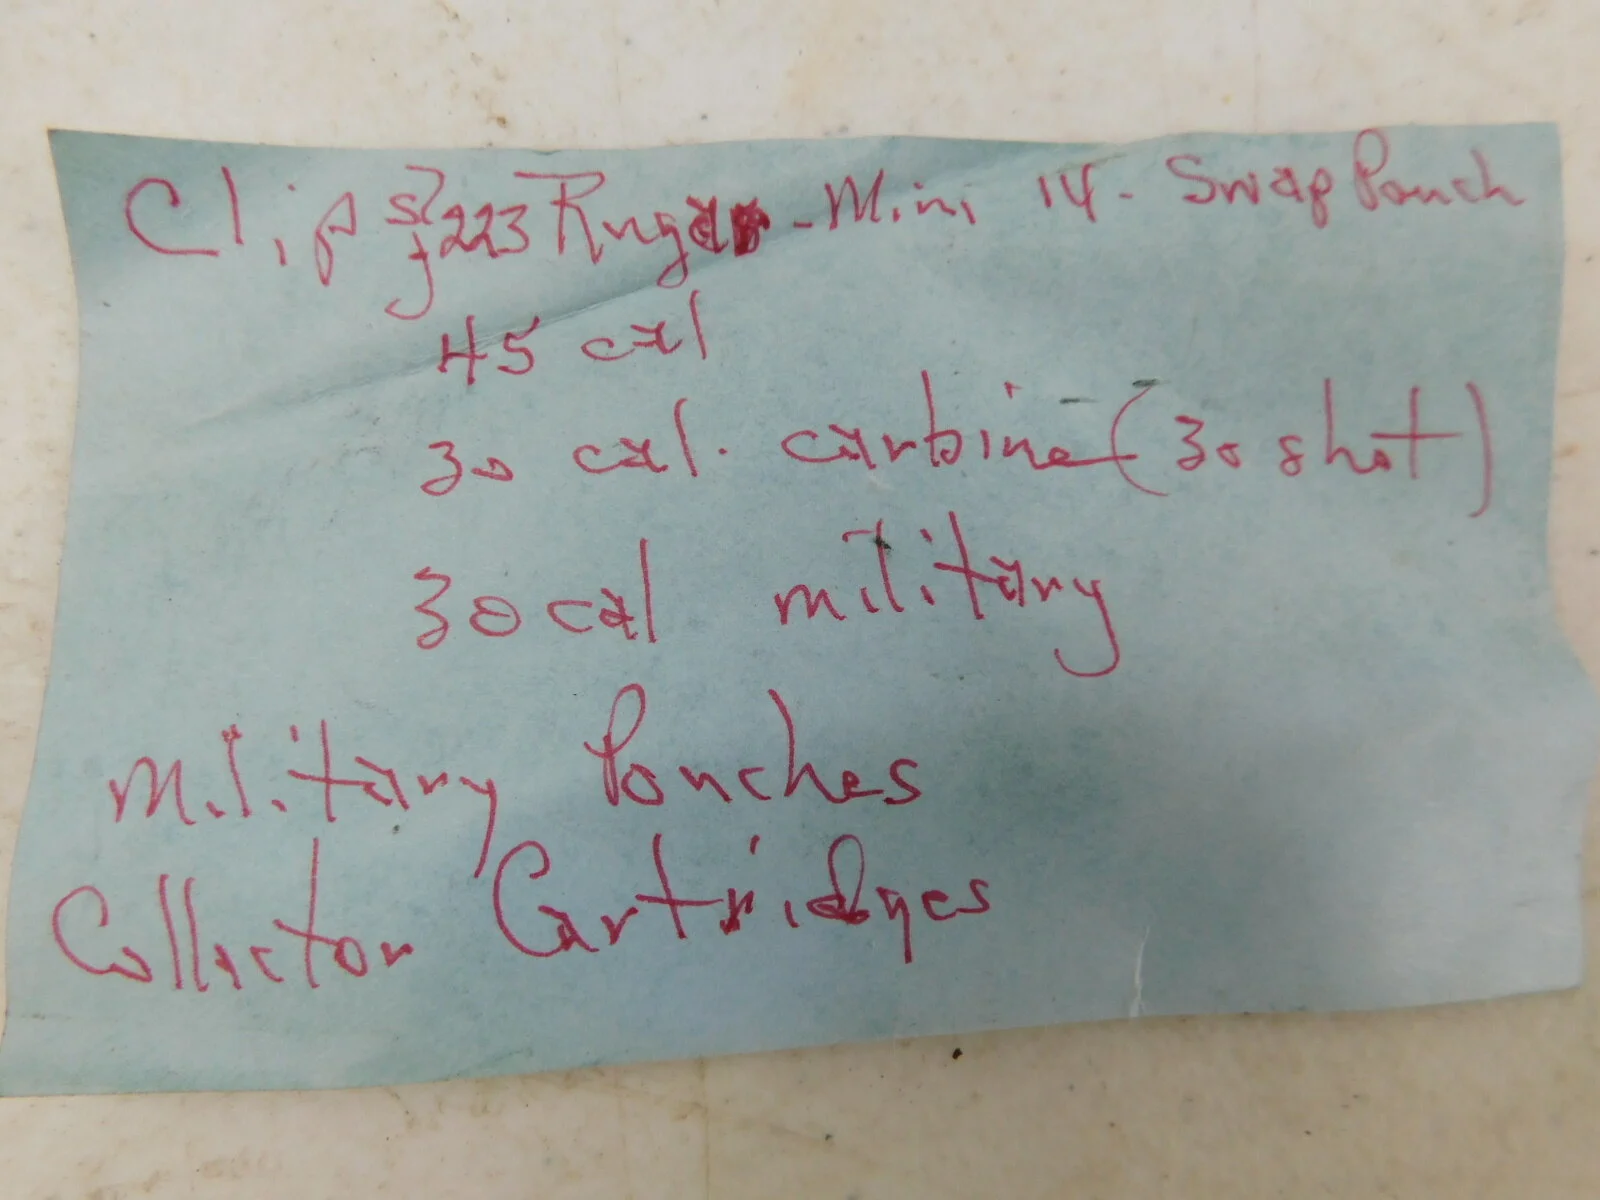 Clips 223 Ruger - Mini 14 - Swap Pouch
45 cal
30 cal. carbine (30 shot)
30 cal military
Military Pouches
Collector Cartridges